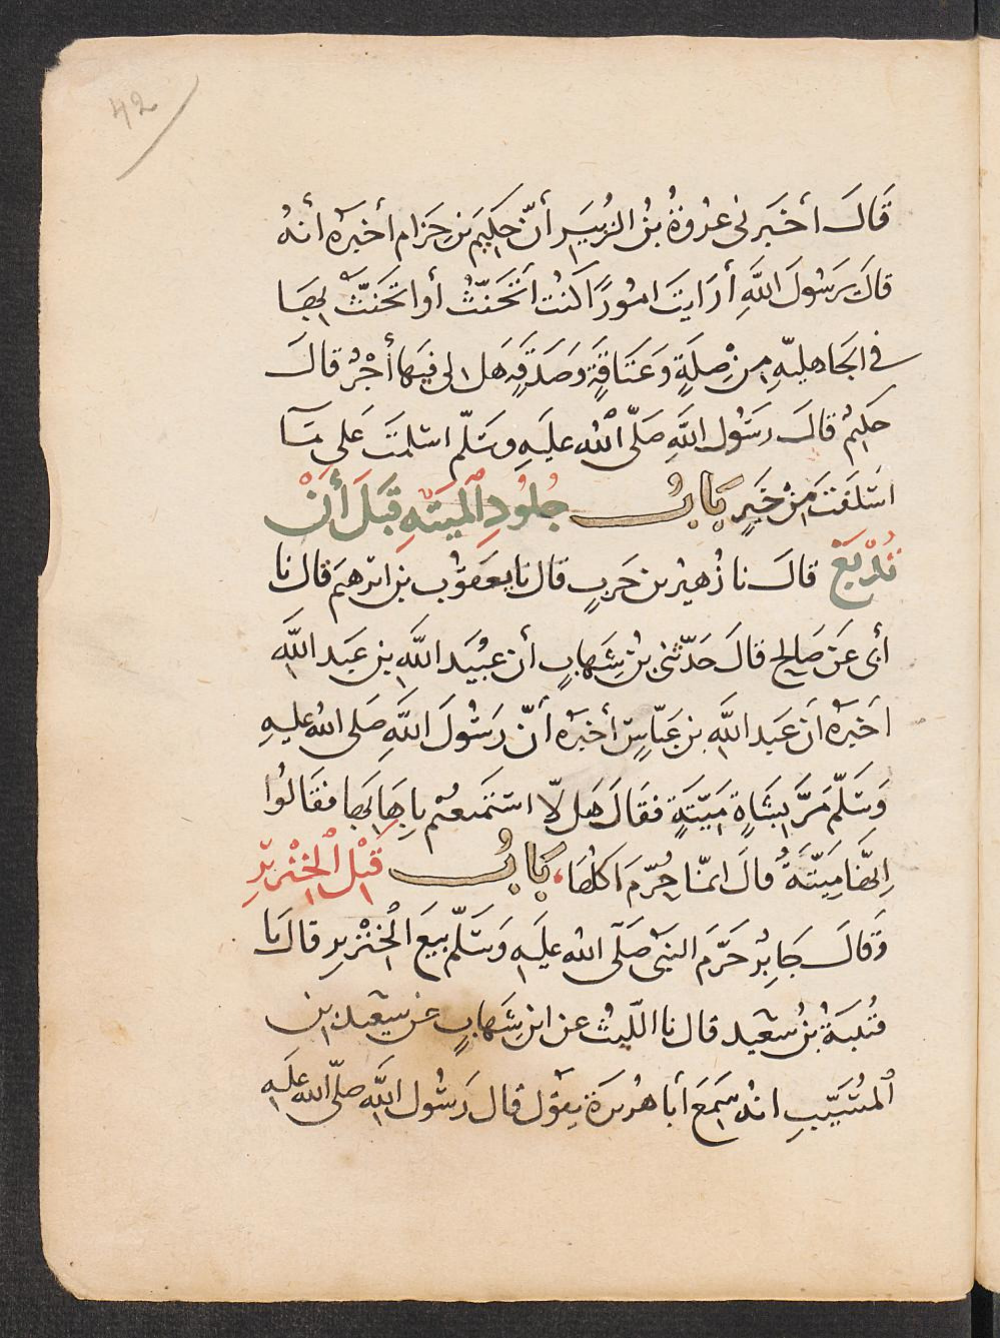 42
قَالَ أخبَرني عُروَةُ بنُ الزُبَيرِ أنّ حَكِيمَ بن حِزَام أخبَرَهُ أنهُ
قالَ يَرَسُولَ اللَّهِ أرَايتَ امُورًا كنتُ اتَحَنّثُ أو اتحَنتُّ بِهَا
في الجَاهليّهِ مِنْ صِلَةٍ وَعَتَاقَةٍ وَصَدَقَهٍ هَل لِى فيَها أجْرٌ قالَ
حَكيمٌ قالَ رسَوُل اللَّهِ صَلّى اللَه عليَهِ وسَلّم اسْلمتَ عَلى مَا
اسَلَفتَ مَنْ خَيَرٍ بَابُ جُلوُدِ المَيتَهِ قَبَلَ أنْ
تُدْبَغَ قالَ نا زُهيرُ بن حَربٍ قال نا يعقوُب بن ابرَهيَم قال نا
أبى عَن صَالِحٍ قالَ حَدّثنى بنُ شِهابٍ أن عبُيَد اللَّهِ بن عَبَد اللَّهِ
اخَبرَهُ انَ عَبَد اللَّهِ بن عَبّاسٍ أخبَرَه أنّ رَسُولَ اللَّهِ صَلى الله عليهِ
وَسَلّم مَرَّ بِشَاةٍ مَيّتَةٍ فقَالَ هَل لّا استَمتَعتُم بِاِهَابِهَا فقَالوُا
اِنّهَا مَيِتَّةٌ قالَ انمّا حُرّمَ اكلُهَا، بَابُ قَتْلِ الخِنْزِيرِ
وَقالَ جَابِرٌ حَرّمَ النبَىّ صَلّى الله عليَهِ وَسَلّم بيَعَ الخنْزِيرِ قالَ نا
قتُيبَةُ بنُ سعَيد قال نا اللّيثُ عن ابن شِهَابٍ عَن سعَيد ابن
المسُيّبِ انهُ سَمِعَ أبا هرُيرَة يقَوُل قال رَسُول اللَّهِ صَلّى الله عليَهِ